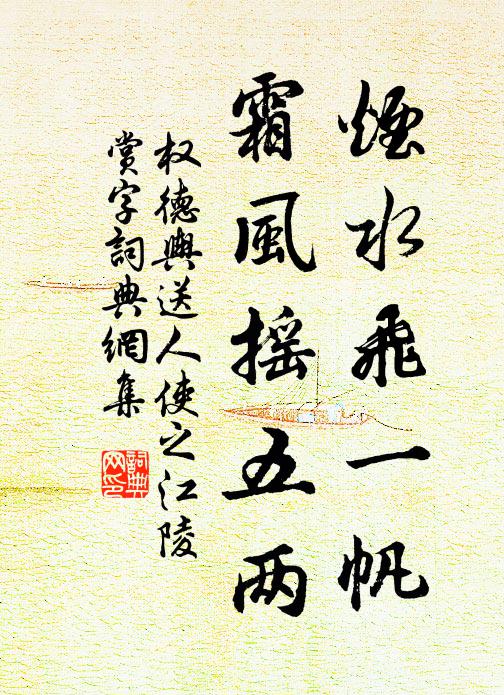 煙水飛一帆
霜風摇五两
权德輿送人使之江陵
賞字詞典網集
詞典网印